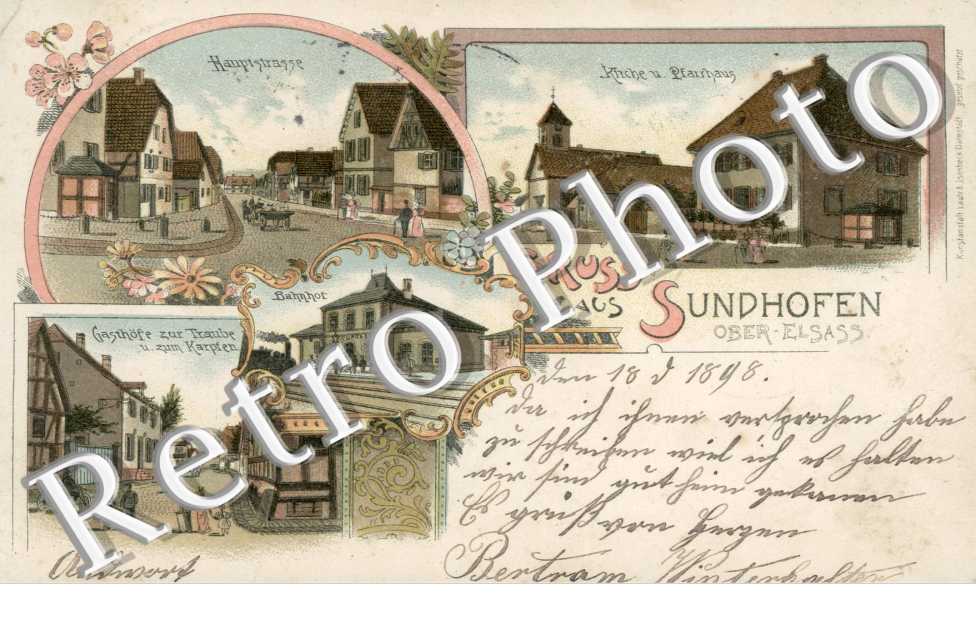 Hauptstrasse
Kirche u. Pfarrhaus
Gruss
aus
SUNDHOFEN
OBER-ELSASS
Bahnhof
Gasthöfe zur Traube
u. zum Karpfen
den 18 d 1898.
da ich ihnen versprochen habe
zu schreiben wiel ich es halten
wir sind gut heim gekamen
Es grüßt von Herzen
Bertram Winterhalter
Antwort
Retro Photo